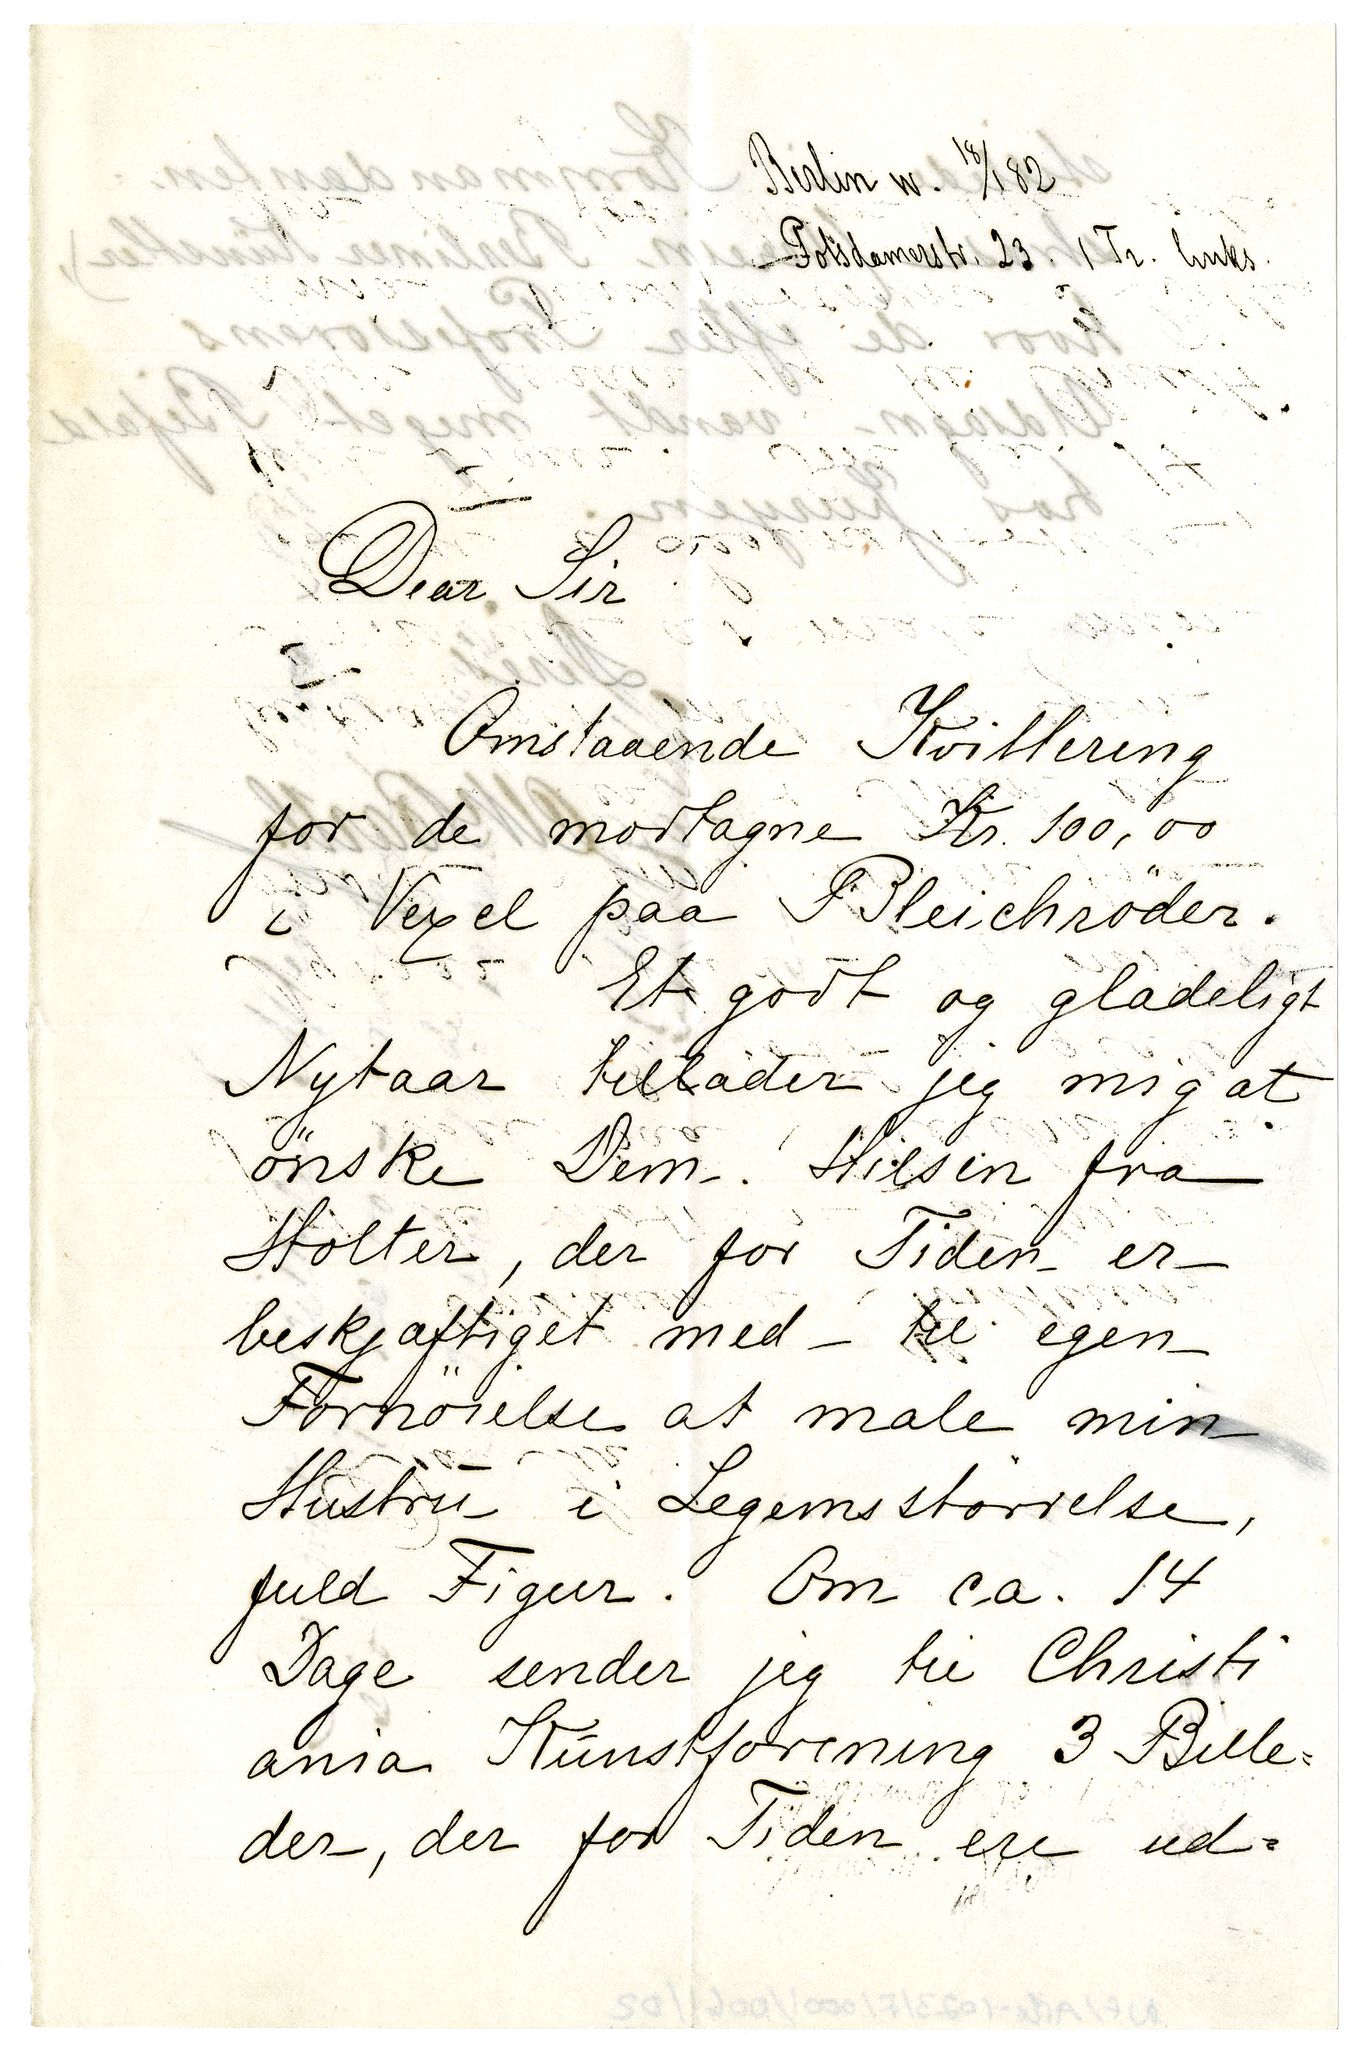 Berlin W. 18/1 82
Potsdamerstr. 23. 1 Tr. links.
Dear Sir
Omstaaende Kvittering
for de modtagne Kr. 100,00
i Vexel paa Bleichröder.
Et godt og gladeligt
Nytaar tillader jeg mig at
önske Dem. Hilsen fra
Holter, der for Tiden er
beskjæftiget med til egen
Fornöielse at male min
Hustru i Legemsstörrelse,
fuld Figur. Om ca. 14
Dage sender jeg til Christi
ania Kunstforening 3 Bille=
der, der for Tiden ere ud=